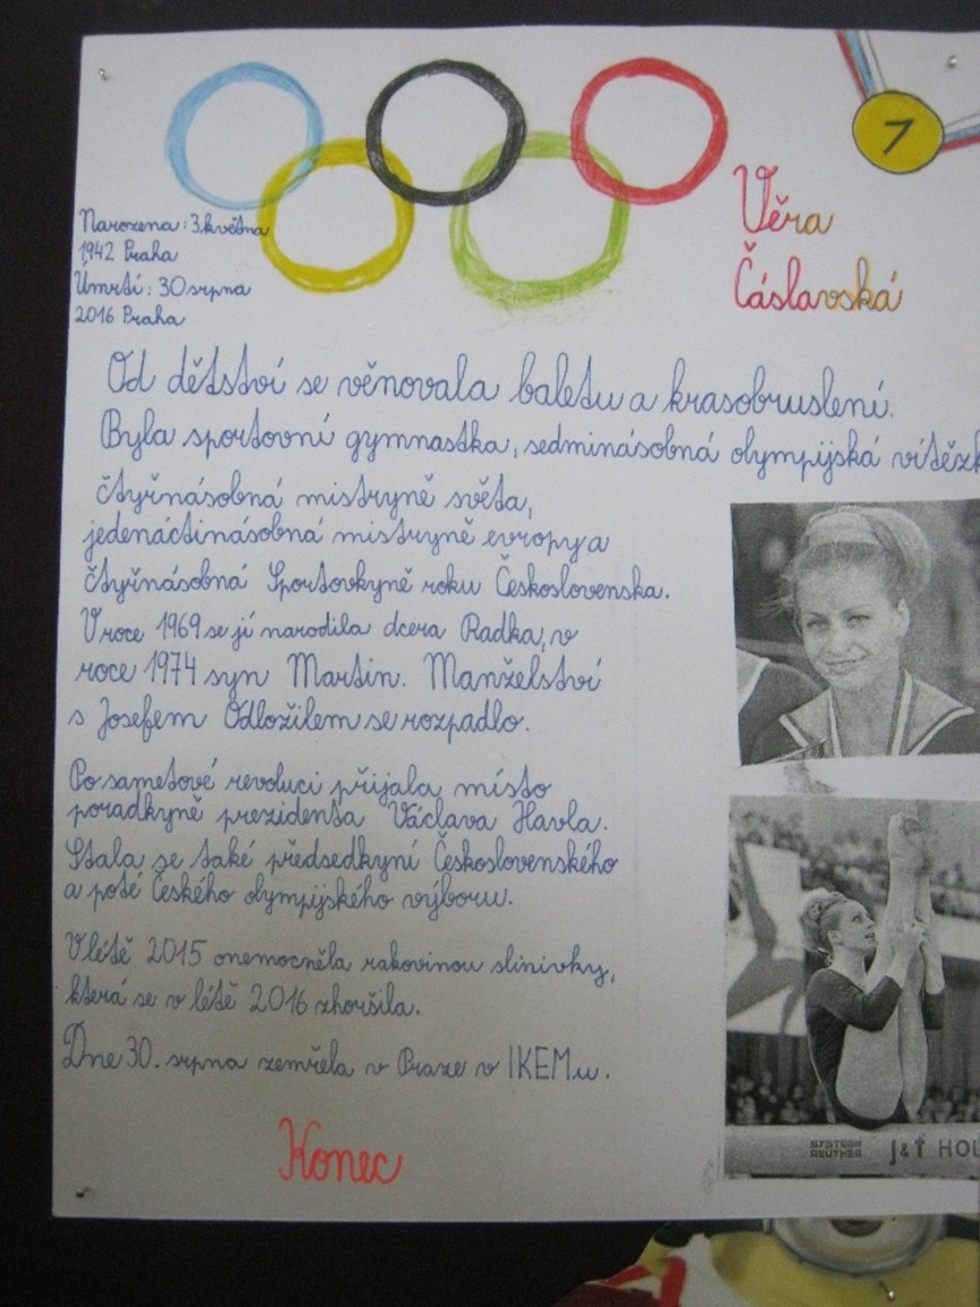 7
Věra
Čáslavská
Narozena: 3. května
1942 Praha
Úmrtí: 30 srpna
2016 Praha
Od dětství se věnovala baletu a krasobruslení.
Byla sportovní gymnastka, sedminásobná olympijská vítězk
čtyřnásobná mistryně světa,
jedenáctinásobná mistryně evropy a
čtyřnásobná Sportovkyně roku Československa.
V roce 1969 se jí narodila dcera Radka, v
roce 1974 syn Martin. Manželství
s Josefem Odložilem se rozpadlo.
Po sametové revoluci přijala místo
poradkyně prezidenta Václava Havla.
Stala se také předsedkyní Československého
a poté Českého olympijského výboru.
V létě 2015 onemocněla rakovinou slinivky,
která se v létě 2016 zhoršila.
Dne 30. srpna zemřela v Praze v IKEMu.
Konec
SYSTEM
REUTHER
J&F HOL